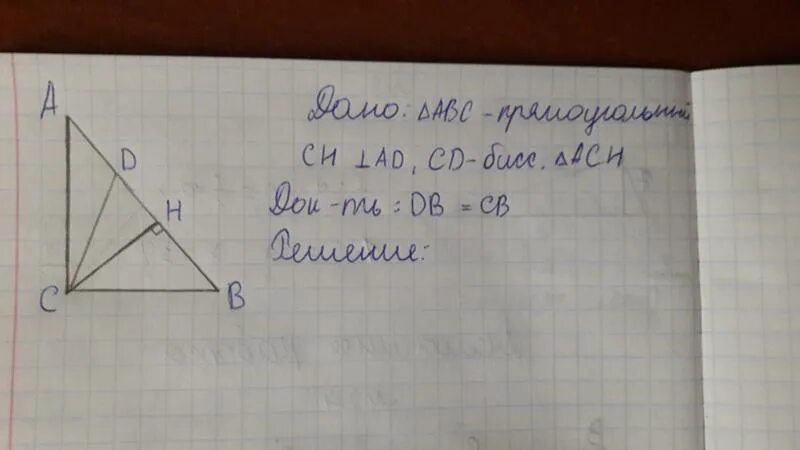 A
D
H
C
B
Дано: △ABC - прямоугольный
CH ⊥ AD, CD - бисс. △ACH
Док-ть: DB = CB
Решение: